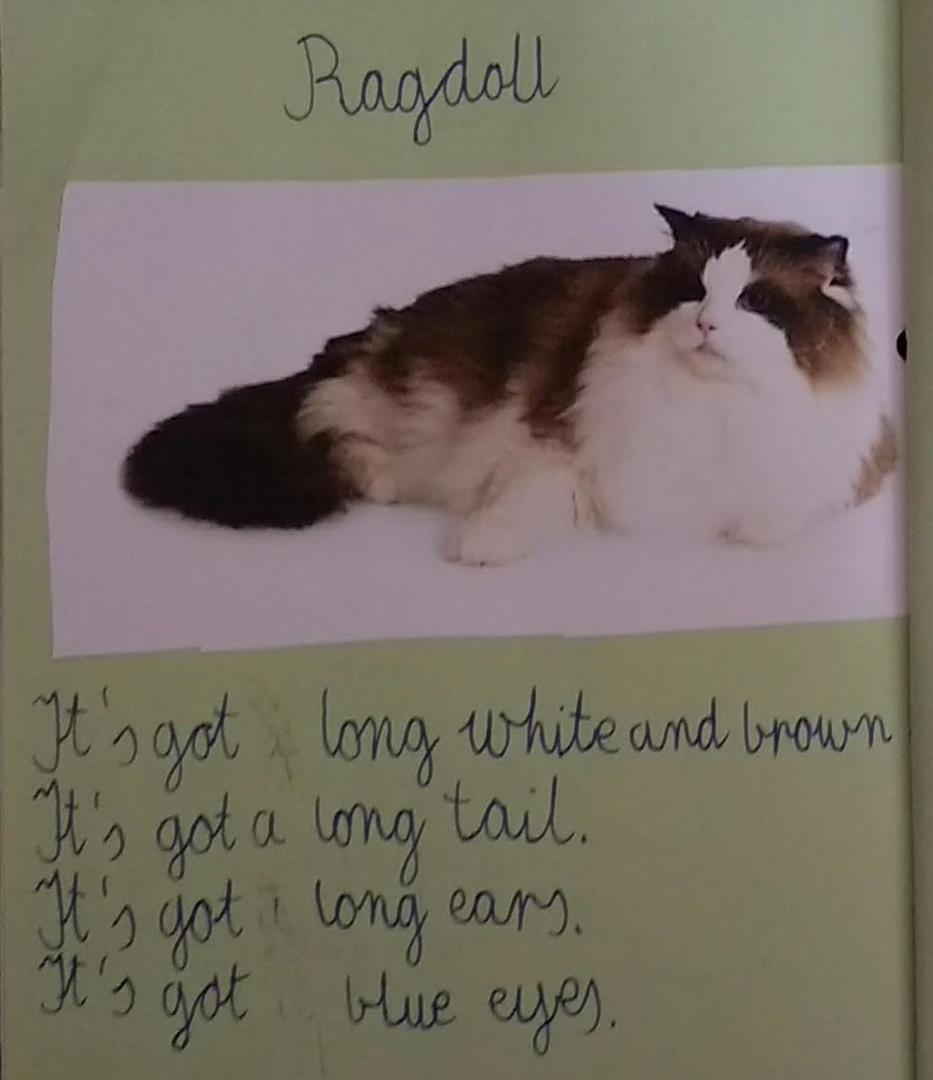 Ragdoll
It's got long white and brown
It's got a long tail.
It's got long ears.
It's got blue eyes.